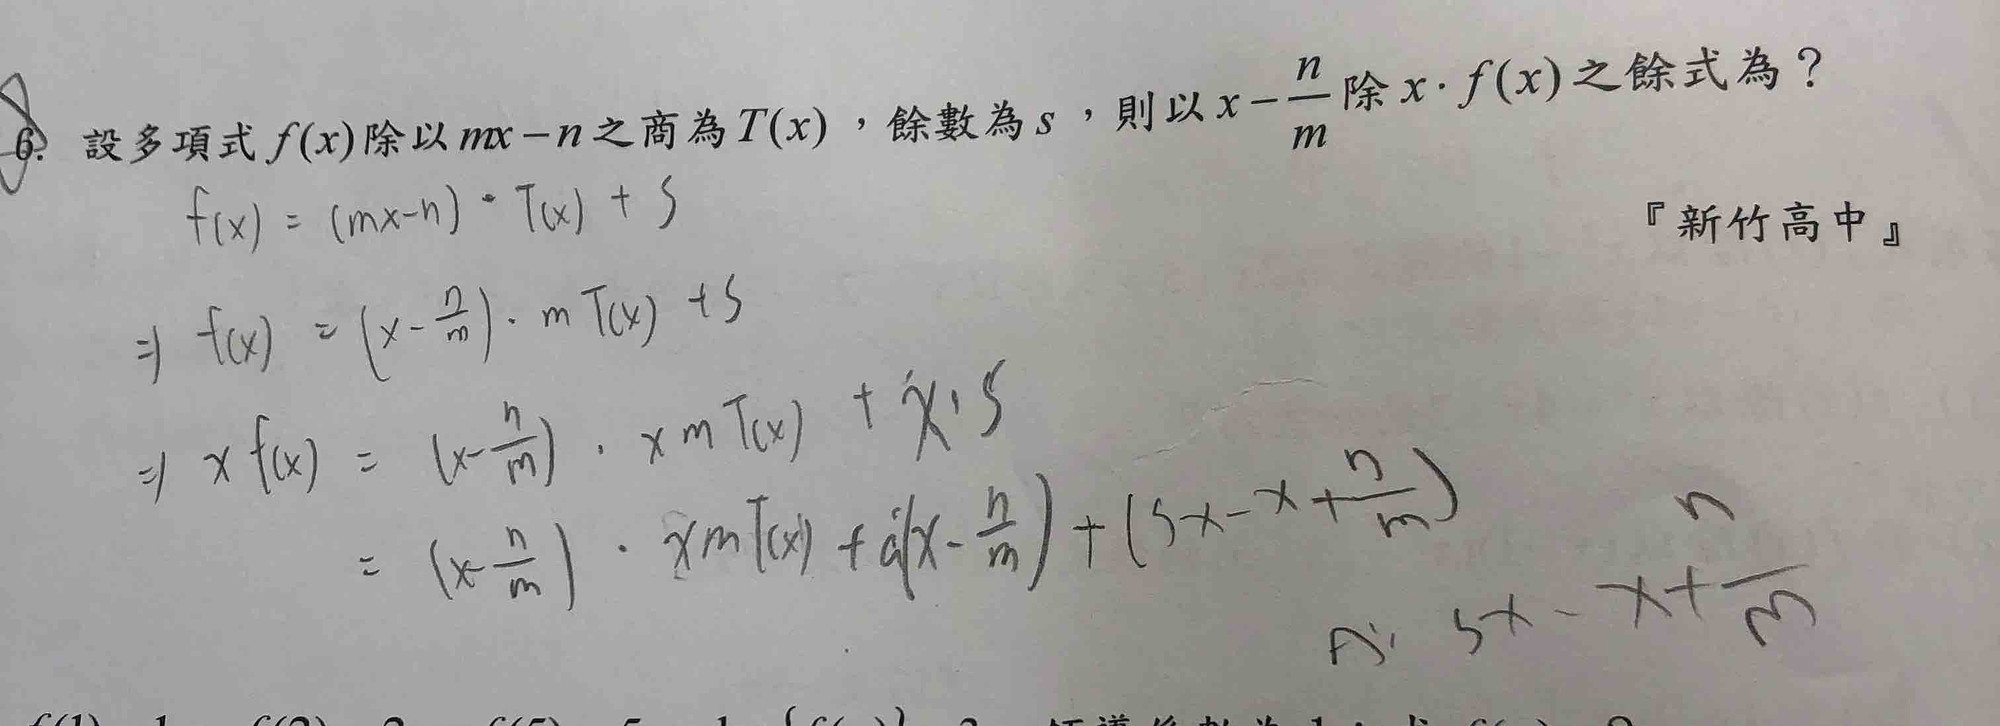 6. 設多項式 f(x) 除以 mx-n 之商為 T(x)，餘數為 s，則以 x-n/m 除 x·f(x) 之餘式為？
『新竹高中』
f(x) = (mx-n)·T(x) + S
⇒ f(x) = (x-n/m)·m T(x) + S
⇒ x f(x) = (x-n/m)·x m T(x) + x·S
= (x-n/m)·x m T(x) + (x-n/m) + (Sx-x+n/m)
A: Sx-x+n/m